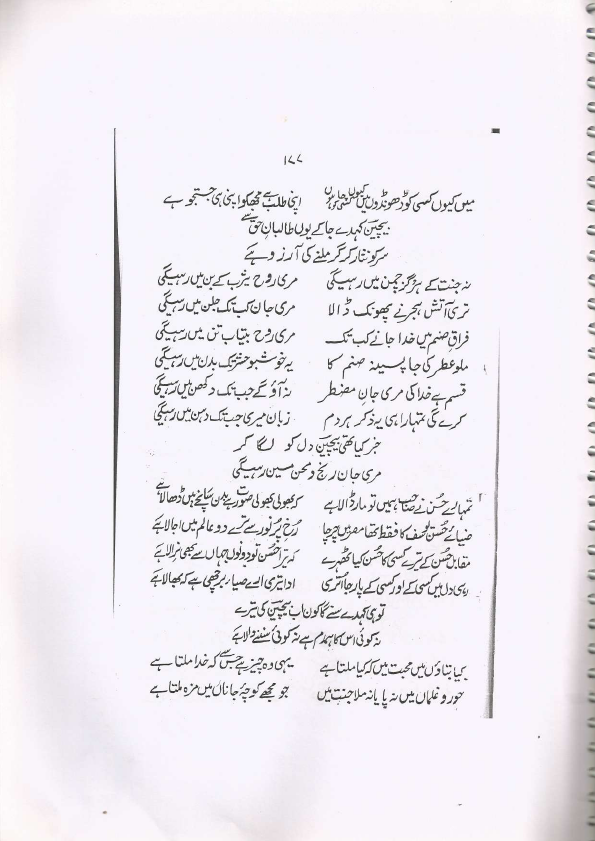 ۱۷۷
میں کیوں کسی کو ڈھونڈوں میں کیوں کسی جا ہوں اپنی طلب ہے مجھکو اپنی ہی جستجو ہے
بیچین کہدے جا کے یوں طالبان حق سے
سر کو نثار کر گر ملنے کی آرزو ہے
نہ جنت کے ہرگز چمن میں رہیگی مری روح یثرب کے بن میں رہیگی
تری آتش ہجر نے پھونک ڈالا مری جان کب تک جلن میں رہیگی
فراق صنم میں خدا جانے کب تک مری روح بیتاب تن میں رہیگی
ملو عطر کی جا پسینہ صنم کا یہ خوشبو حشر تک بدن میں رہیگی
قسم ہے خدا کی مری جان مضطر نہ آؤ گے جب تک دکھن میں رہیگی
کرے گی تمہارا ہی یہ ذکر ہر دم زبان میری جب تک دہن میں رہیگی
خبر کیا تھی بیچین دل کو لگا کر
مری جان رنج و محن میں رہیگی
تمہارے حسن نے صاحب ہمیں تو مار ڈالا ہے کہ بھولی بھولی صورت ہے بدن سانچے میں ڈھالا ہے
ضیائے حسن یوسف کا فقط تھا مصر میں چرچا رخ پر نور سے ترے دو عالم میں اجالا ہے
مقابل حسن کے ترے کسی کا حسن کیا ٹھہرے کہ ترا حسن تو دونوں جہاں سے بھی نرالا ہے
رہی دل میں کسی کے اور کسی کے پار جا اتری ادا تیری اے صیاد برچھی ہے کہ بھالا ہے
تو ہی کہدے سنے گا کون اب بیچین کی تیرے
نہ کوئی اس کا ہمدم ہے نہ کوئی سننے والا ہے
کیا بتاؤں میں محبت میں کہ کیا ملتا ہے یہی وہ چیز ہے جس سے کہ خدا ملتا ہے
حور و غلماں میں نہ پایا نہ ملا جنت میں جو مجھے کوچۂ جاناں میں مزہ ملتا ہے